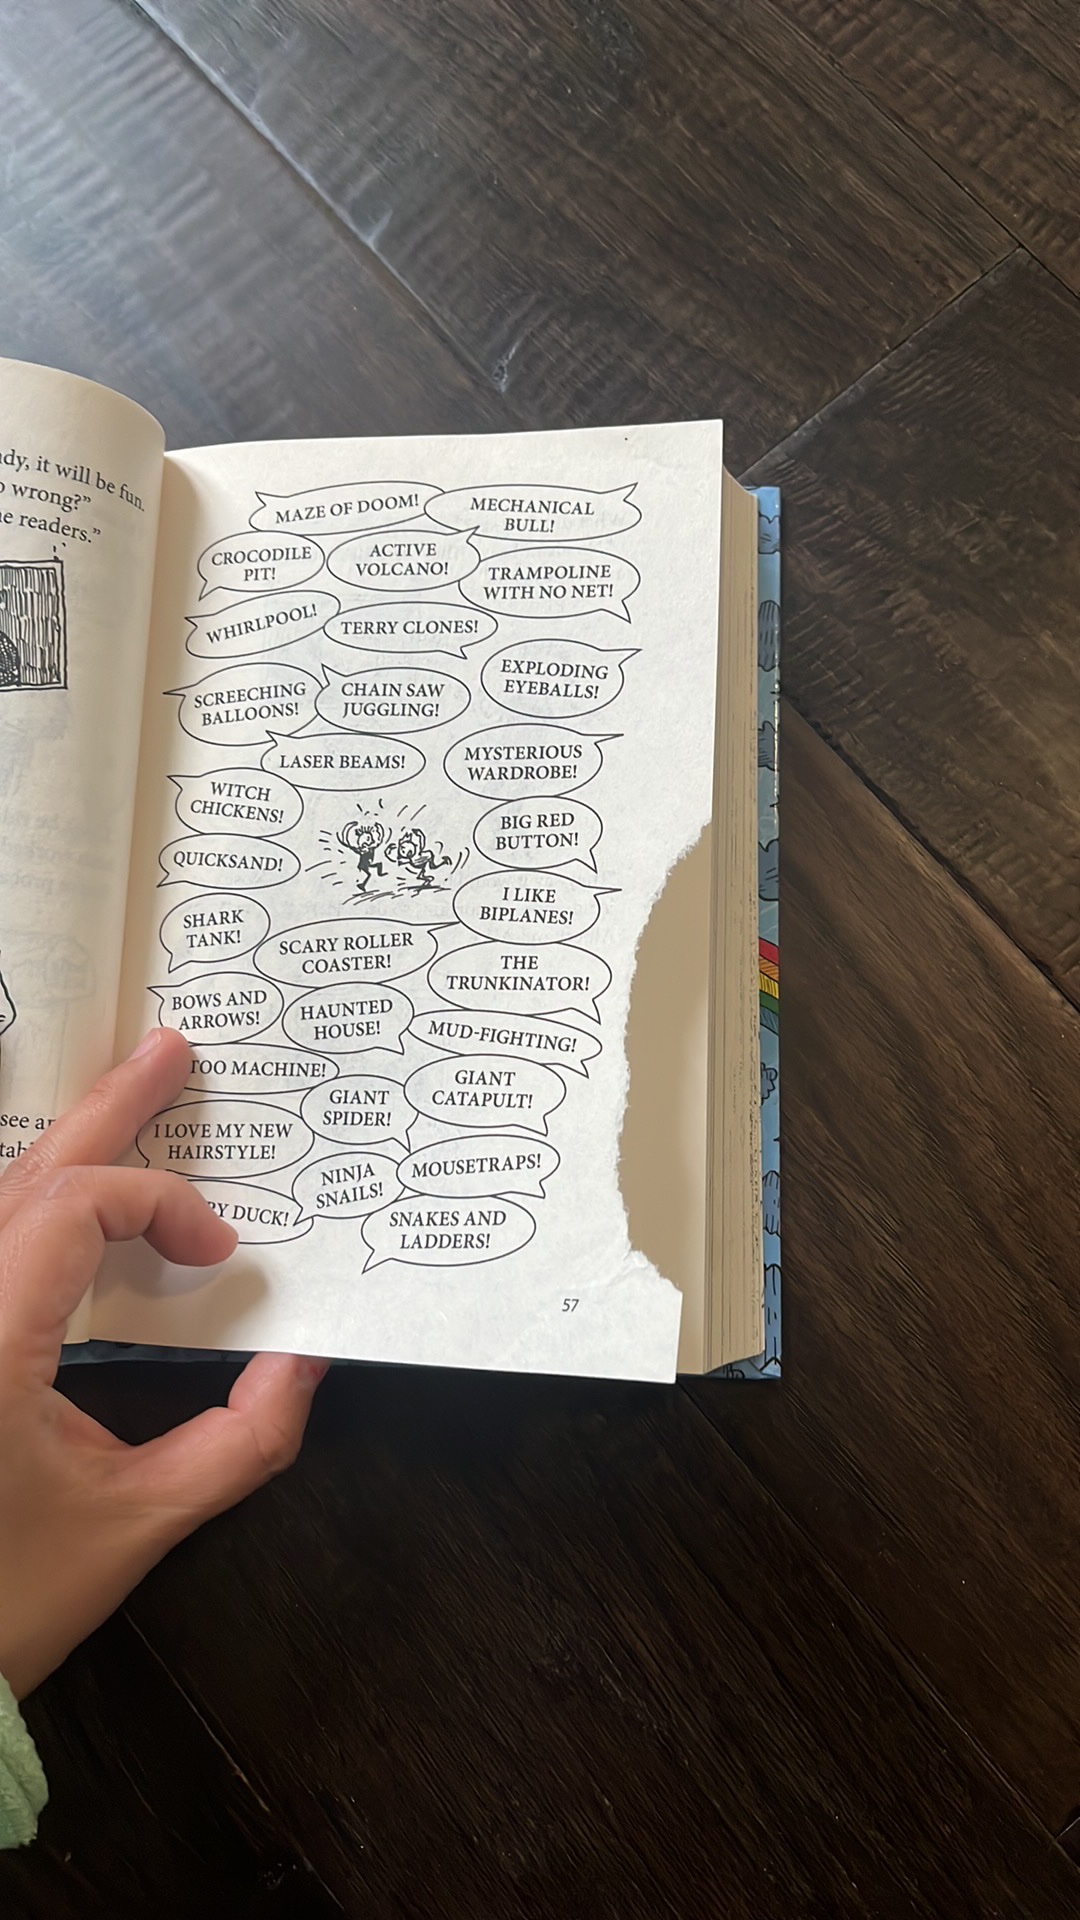 dy, it will be fun.
wrong?”
e readers.”
see
MAZE OF DOOM!
MECHANICAL
BULL!
CROCODILE
PIT!
ACTIVE
VOLCANO!
TRAMPOLINE
WITH NO NET!
WHIRLPOOL!
TERRY CLONES!
EXPLODING
EYEBALLS!
SCREECHING
BALLOONS!
CHAIN SAW
JUGGLING!
LASER BEAMS!
MYSTERIOUS
WARDROBE!
WITCH
CHICKENS!
BIG RED
BUTTON!
QUICKSAND!
I LIKE
BIPLANES!
SHARK
TANK!
SCARY ROLLER
COASTER!
THE
TRUNKINATOR!
BOWS AND
ARROWS!
HAUNTED
HOUSE!
MUD-FIGHTING!
TOO MACHINE!
GIANT
SPIDER!
GIANT
CATAPULT!
I LOVE MY NEW
HAIRSTYLE!
NINJA
SNAILS!
MOUSETRAPS!
RY DUCK!
SNAKES AND
LADDERS!
57